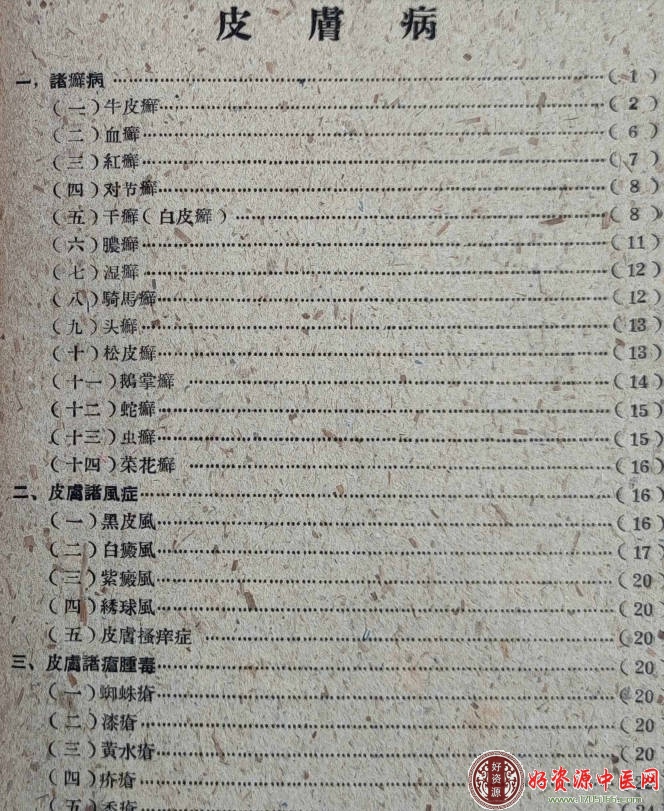 皮膚病
一，諸癬病……(1)
(一)牛皮癬……(2)
(二)血癬……(6)
(三)紅癬……(7)
(四)对节癬……(8)
(五)干癬(白皮癬)……(8)
(六)膿癬……(11)
(七)湿癬……(12)
(八)騎馬癬……(12)
(九)头癬……(13)
(十)松皮癬……(13)
(十一)鵝掌癬……(14)
(十二)蛇癬……(15)
(十三)虫癬……(15)
(十四)菜花癬……(16)
二、皮膚諸風症……(16)
(一)黑皮風……(16)
(二)白癜風……(17)
(三)紫癜風……(20)
(四)綉球風……(20)
(五)皮膚搔痒症……(20)
三、皮膚諸瘡腫毒……(20)
(一)蜘蛛瘡……(20)
(二)漆瘡……(20)
(三)黃水瘡……(20)
(四)疥瘡……
(五)禿瘡
好资源
好资源中医网